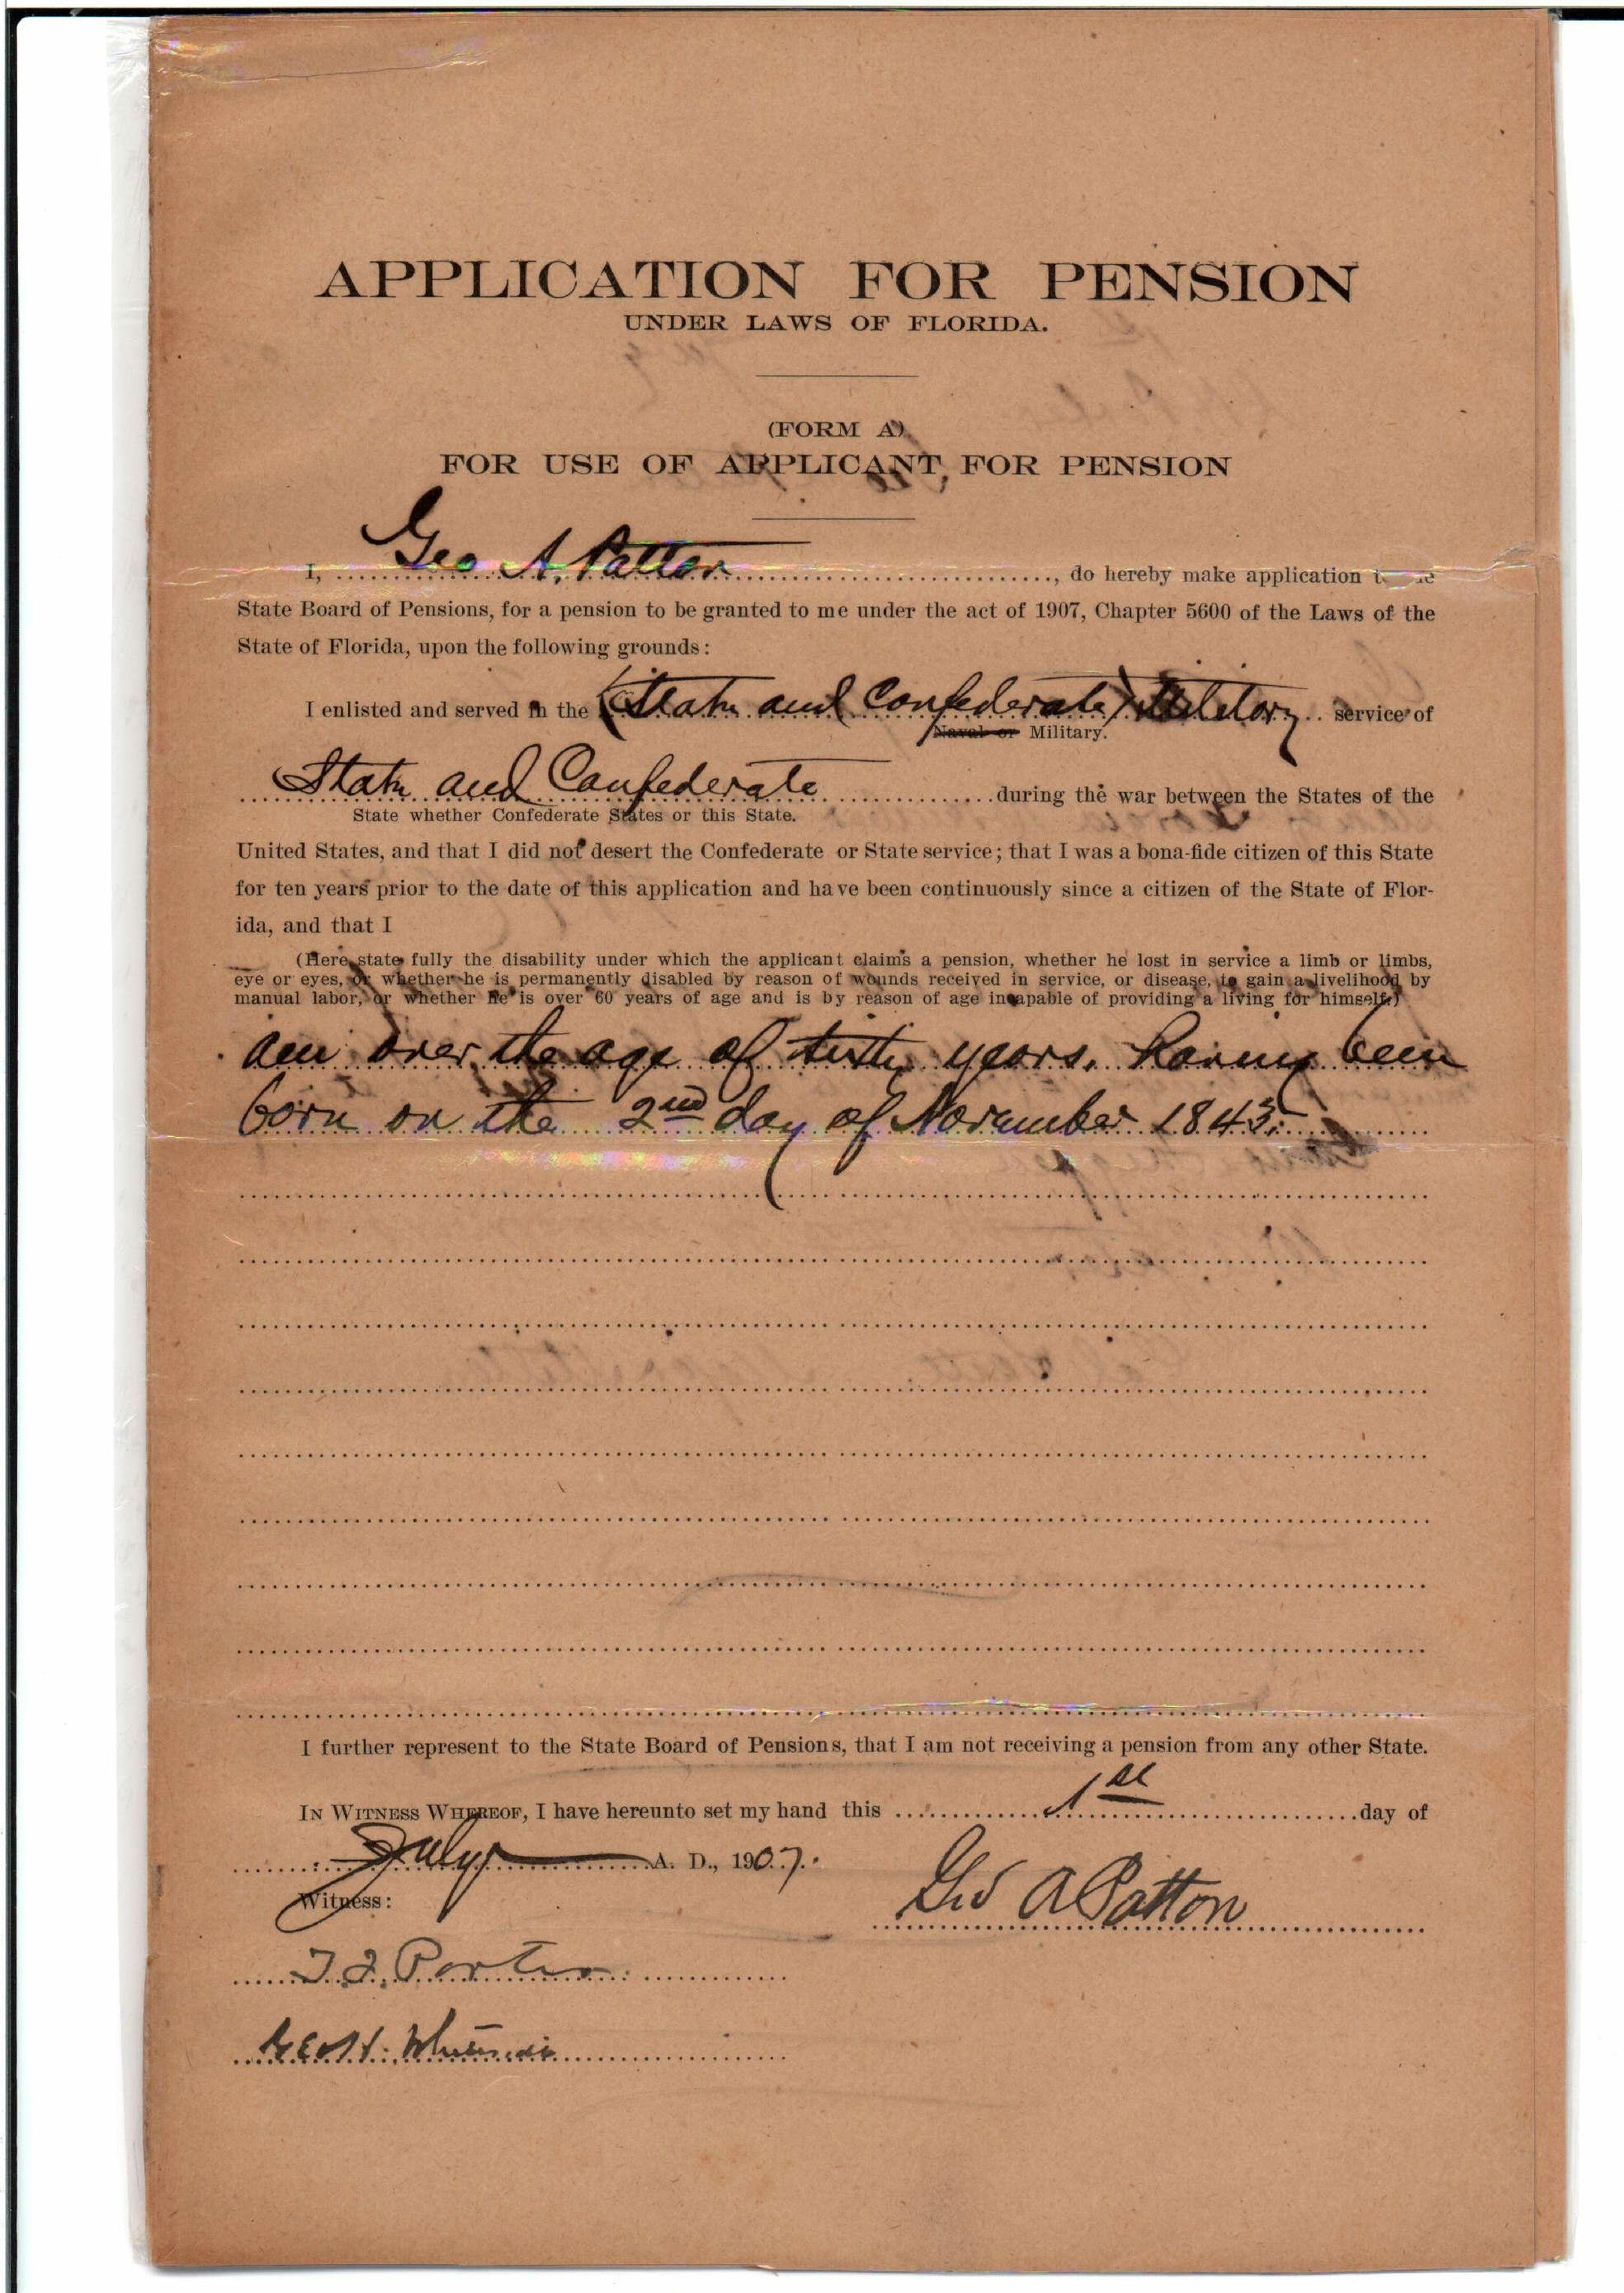 APPLICATION FOR PENSION
UNDER LAWS OF FLORIDA.
(FORM A)
FOR USE OF APPLICANT FOR PENSION
I, Geo A. Patton, do hereby make application
State Board of Pensions, for a pension to be granted to me under the act of 1907, Chapter 5600 of the Laws of the
State of Florida, upon the following grounds:
I enlisted and served in the (State and Confederate) Military service of
Naval or Military.
State and Confederate during the war between the States of the
State whether Confederate States or this State.
United States, and that I did not desert the Confederate or State service; that I was a bona-fide citizen of this State
for ten years prior to the date of this application and have been continuously since a citizen of the State of Flor-
ida, and that I
(Here state fully the disability under which the applicant claims a pension, whether he lost in service a limb or limbs,
eye or eyes, or whether he is permanently disabled by reason of wounds received in service, or disease, to gain a livelihood by
manual labor, or whether he is over 60 years of age and is by reason of age incapable of providing a living for himself.)
am over the age of sixty years. Having been
born on the 2nd day of November 1843.
I further represent to the State Board of Pensions, that I am not receiving a pension from any other State.
IN WITNESS WHEREOF, I have hereunto set my hand this 1st day of
July A. D., 1907.
Witness:
Geo A Patton
Porter